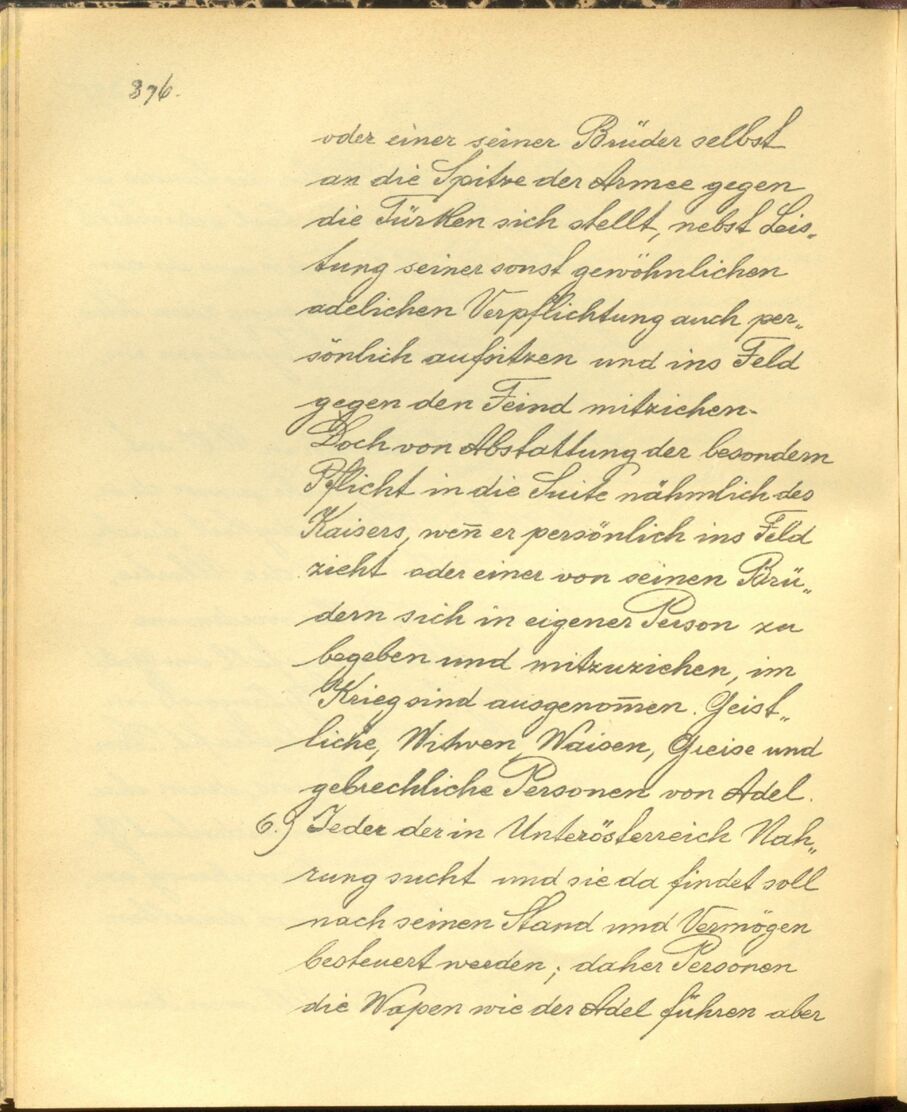 376.
oder einer seiner Brüder selbst
an die Spitze der Armee gegen
die Türken sich stellt, nebst Leis„
tung seiner sonst gewöhnlichen
adelichen Verpflichtung auch per„
sönlich aufsitzen und ins Feld
gegen den Feind mitziehen.
Doch von Abstattung der besondern
Pflicht in die Suite nähmlich des
Kaisers, wen̄ er persönlich ins Feld
zieht oder einer von seinen Brü„
dern sich in eigener Person zu
begeben und mitzuziehen, im
Krieg sind ausgenom̄en. Geist„
liche, Witwen, Waisen, Greise und
gebrechliche Personen von Adel.
6.) Jeder der in Unterösterreich Nah„
rung sucht und sie da findet soll
nach seinen Stand und Vermögen
besteuert werden; daher Personen
die Wapen wie der Adel führen aber